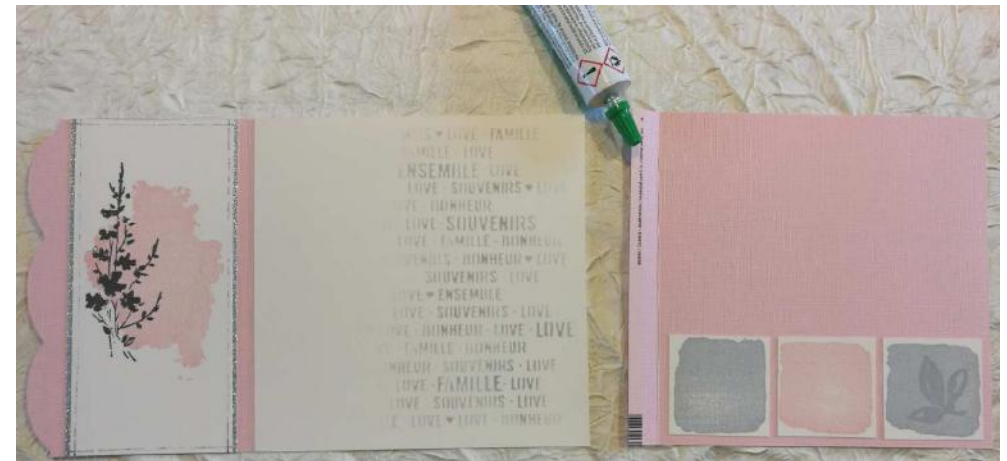 LOVE · FAMILLE
FAMILLE · LOVE
ENSEMBLE · LOVE
LOVE · SOUVENIRS ♥ LOVE
LOVE · BONHEUR
LOVE · SOUVENIRS
LOVE · FAMILLE · BONHEUR
SOUVENIRS · BONHEUR ♥ LOVE
SOUVENIRS · LOVE
LOVE ♥ ENSEMBLE
LOVE · SOUVENIRS · LOVE
LOVE · BONHEUR · LOVE · LOVE
FAMILLE · BONHEUR
BONHEUR · LOVE · SOUVENIRS · LOVE
LOVE · FAMILLE · LOVE
LOVE · SOUVENIRS · LOVE
LOVE ♥ LOVE · BONHEUR